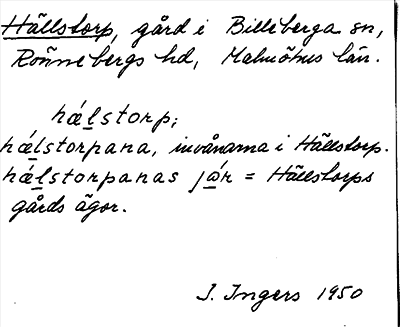 Hällstorp, gård i Billeberga sn,
Rönnebergs hd, Malmöhus län.
hǽlstorp;
hǽlstorpana, invånarna i Hällstorp.
hǽlstorpanas jár = Hällstorps
gårds ägor.
I. Ingers 1950